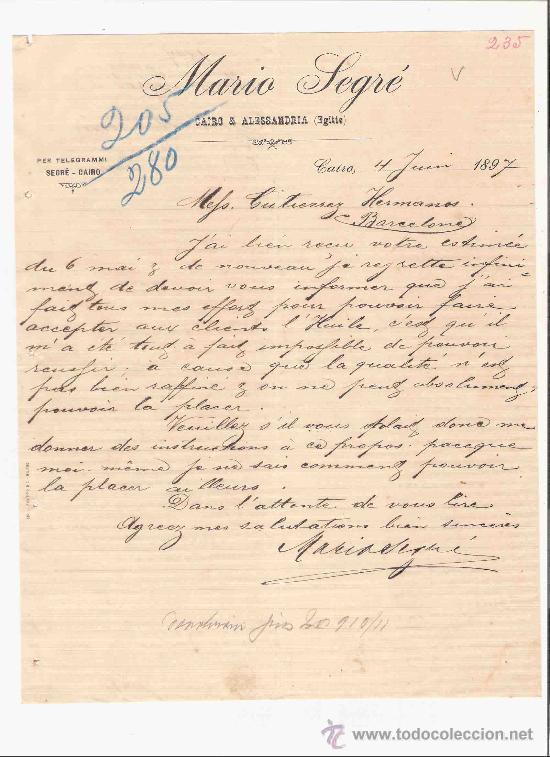 235
Mario Segré
CAIRO & ALESSANDRIA (Egitto)
205
280
PER TELEGRAMMI
SEGRÈ - CAIRO
Cairo, 4 Juin 1897
Mess. Gutierrez Hermanos.
Barcelone
J'ai bien reçu votre estimée
du 6 mai & de nouveau je regrette infini
ment de devoir vous informer que j'ai
fait tous mes effort pour pouvoir faire
accepter aux clients l'Huile, c'est qu'il
m'a été tout à fait impossible de pouvoir
reussir; a cause que la qualité n'est
pas bien raffiné & on ne peut absolument
pouvoir la placer.
Veuillez s'il vous plait donc me
donner des instructions à ce propos, paceque
moi même je ne sais comment pouvoir
la placer ailleurs.
Dans l'attente de vous lire
Agreez mes salutations bien sincères
Mario Segré
todocoleccion
www.todocoleccion.com